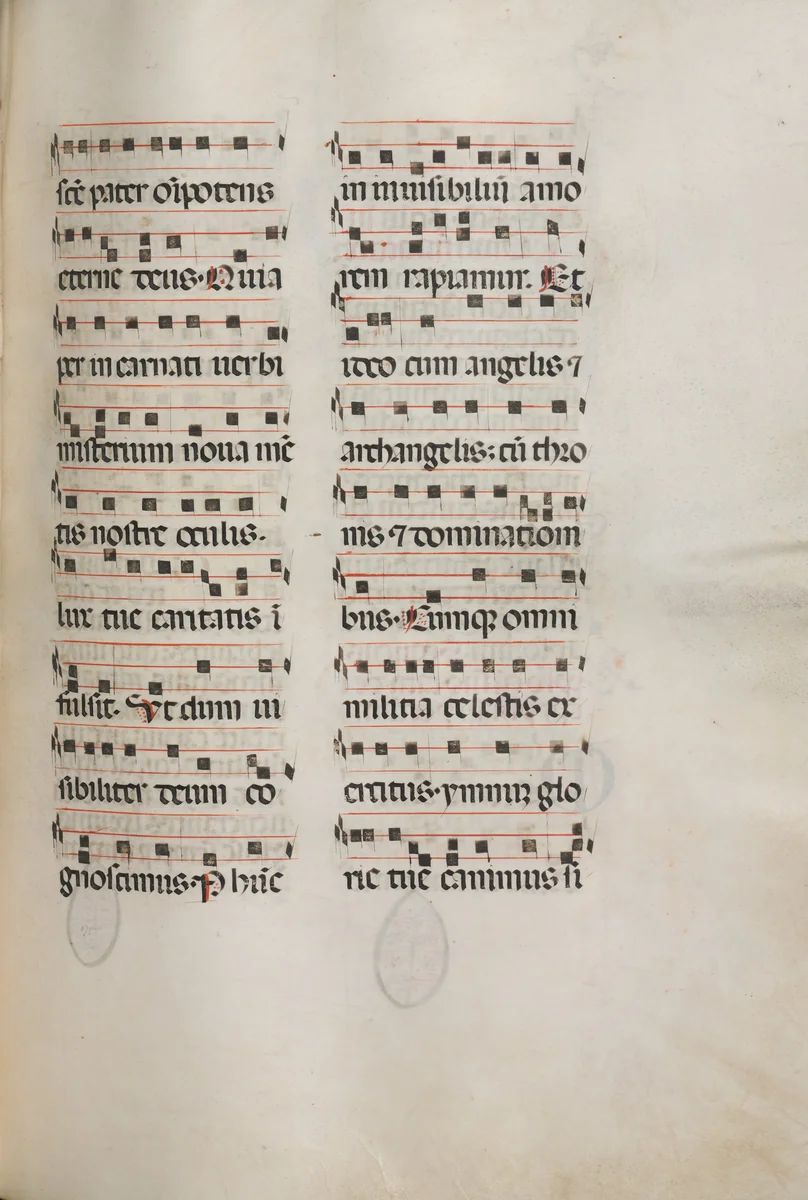 sc̄e pater om̄potens
eterne deus. Quia
per in carnati uerbi
misterium noua mē
tis nostre oculis.
lux tue caritatis ī
fulsit. Vt dum ui
sibiliter deum co
gnoscimus. P hūc
in inuisibiliū amo
rem rapiamur. Et
ideo cum angelis ⁊
archangelis: cū thro
nis ⁊ dominationi
bus. Cumqꝫ omni
militia celestis ex
ercitus. ymnuꝫ glo
rie tue canimus si